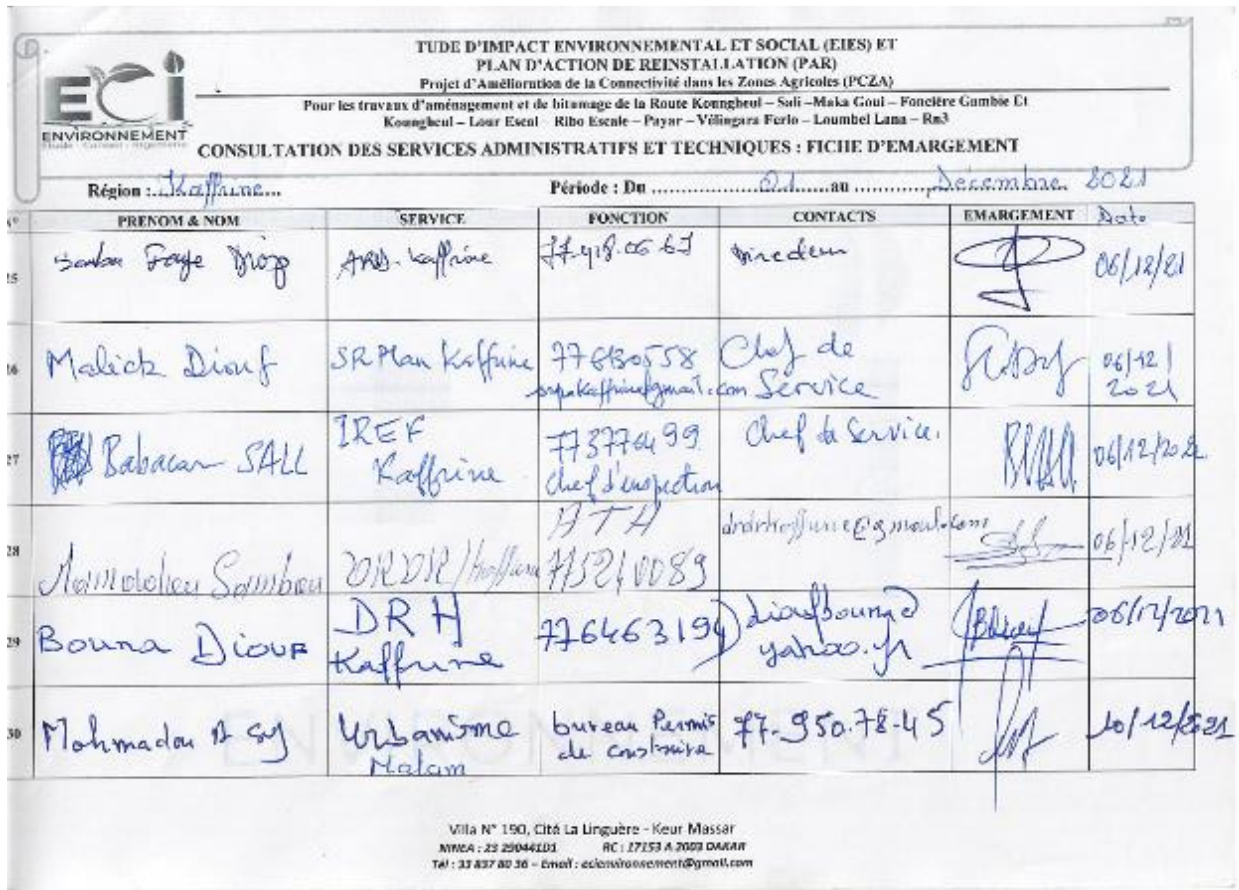 ECI
ENVIRONNEMENT
TUDE D'IMPACT ENVIRONNEMENTAL ET SOCIAL (EIES) ET
PLAN D'ACTION DE REINSTALLATION (PAR)
Projet d'Amélioration de la Connectivité dans les Zones Agricoles (PCZA)
Pour les travaux d'aménagement et de bitumage de la Route Koungheul – Sali –Maka Goui – Foncière Gambie Et
Koungheul – Lour Escal – Ribo Escale – Payar – Vélingara Ferlo – Loumbel Lana – Rn3
CONSULTATION DES SERVICES ADMINISTRATIFS ET TECHNIQUES : FICHE D'EMARGEMENT
Région : Kaffrine... Période : Du ........ 01 ......au ............ Décembre 2021
N° PRENOM & NOM SERVICE FONCTION CONTACTS EMARGEMENT Date
25 Faye Diop ARD. Kaffrine 77.418.06.67 Directeur 06/12/21
26 Malick Diouf SRPlan Kaffrine 776130558 Chef de 06/12/
srpkaffrine@gmail.com Service 2021
27 Babacar SALL IREF 773776499 Chef de Service. 06/12/2021
Kaffrine Chef d'inspection
28 DRDR/Kaffrine ATA 775210089 drdrkaffrine@gmail.com 06/12/21
29 Bouna DIOUF DRH 776463194 dioufbouna@ 06/12/2021
Kaffrine yahoo.fr
30 Mohmadou A Sy Urbanisme bureau Permis 77-950-78-45 10/12/2021
Malam de construire
Villa N° 190, Cité La Linguère - Keur Massar
NINEA : 23 290441D1 RC : 17153 A 2003 DAKAR
Tél : 33 837 80 36 – Email : ecienvironnement@gmail.com